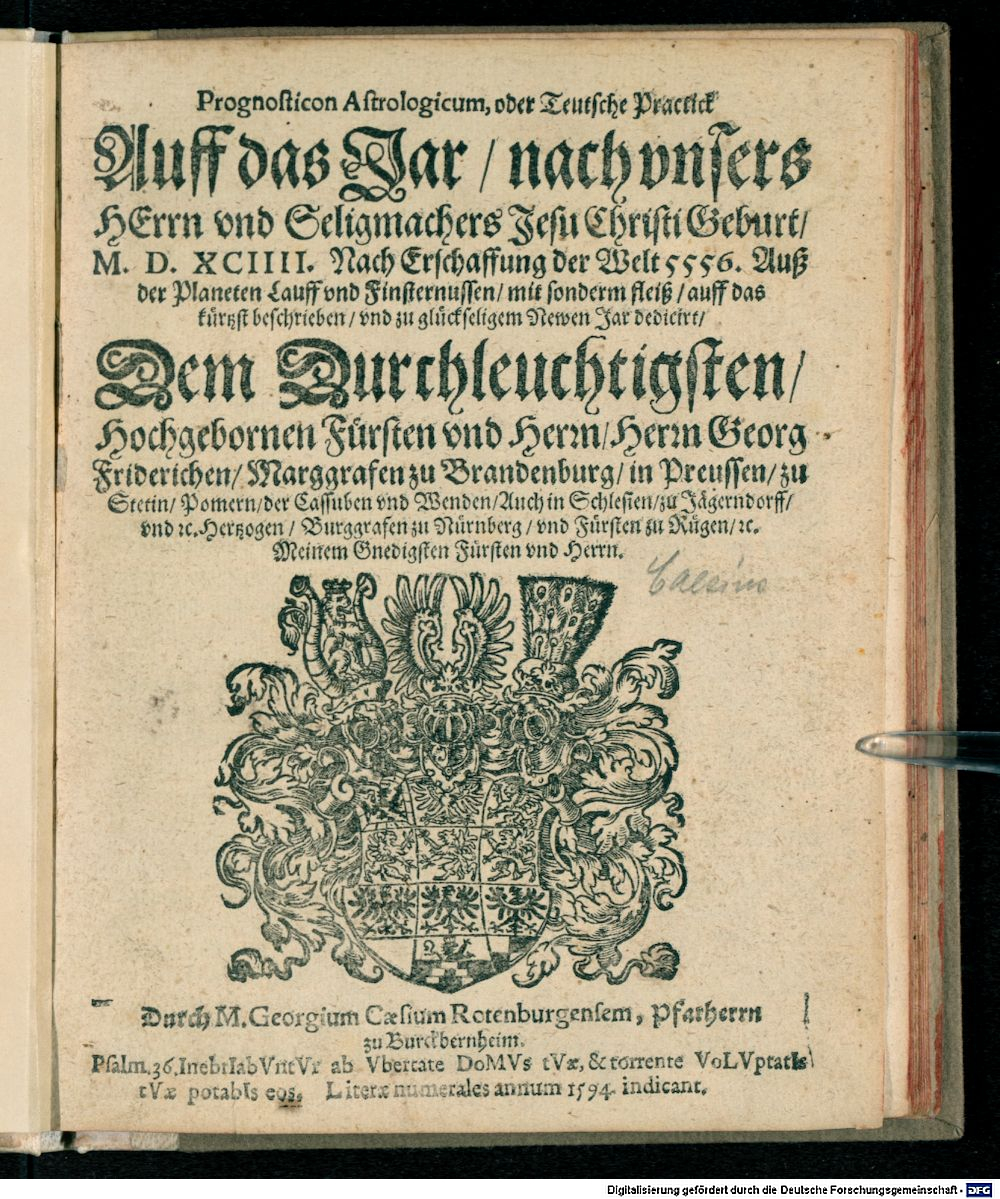 Prognosticon Astrologicum, oder Teutsche Practick
Auff das Jar / nach vnsers
HErrn vnd Seligmachers Jesu Christi Geburt/
M. D. XCIIII. Nach Erschaffung der Welt 5556. Auß
der Planeten Lauff vnd Finsternussen / mit sonderm fleiß / auff das
kürtzst beschrieben / vnd zu glückseligem Newen Jar dedicirt/
Dem Durchleuchtigsten/
Hochgebornen Fürsten vnd Herrn/ Herrn Georg
Friderichen/ Marggrafen zu Brandenburg/ in Preussen/ zu
Stetin/ Pomern/ der Cassuben vnd Wenden/ Auch in Schlesien/ zu Jägerndorff/
vnd ꝛc. Hertzogen / Burggrafen zu Nürnberg / vnd Fürsten zu Rügen/ ꝛc.
Meinem Gnedigsten Fürsten vnd Herrn.
Caesius
Durch M. Georgium Cæsium Rotenburgensem, Pfarherrn
zu Burckbernheim.
Psalm. 36. InebrIabVntVr ab Vbertate DoMVs tVæ, & torrente VoLVptatIs
tVæ potabIs eos. Literæ numerales annum 1594. indicant.
Digitalisierung gefördert durch die Deutsche Forschungsgemeinschaft - DFG